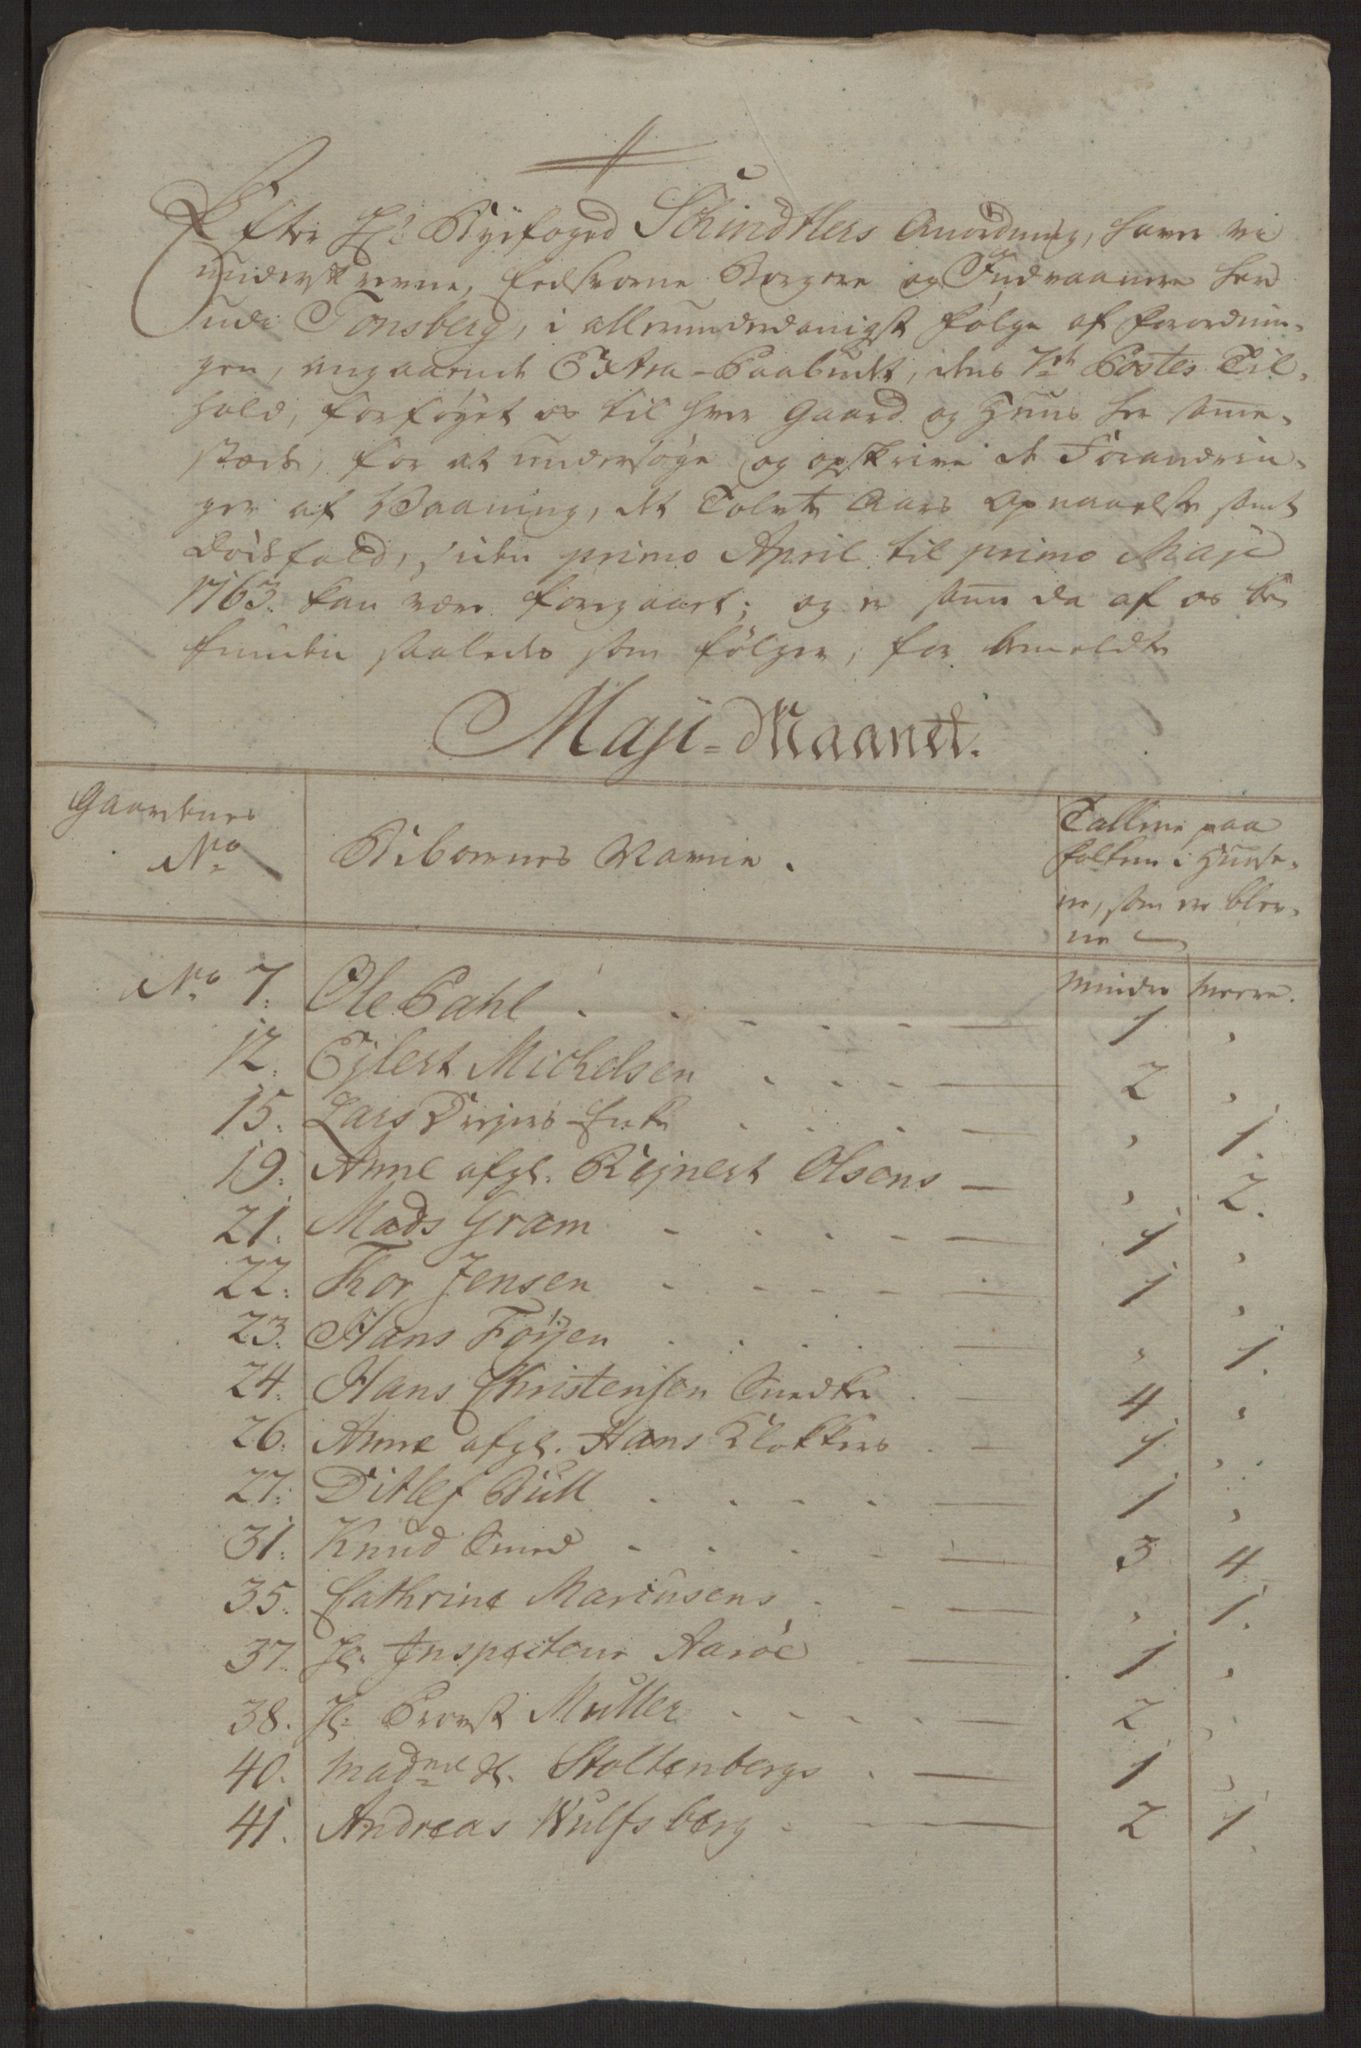 Efter Hr: Byefoged Schindtlers Anordning, haver vi
underskrevne, Eedsvorne Borgere og Indvaanere her
udi Tonsberg, i allerunderdanigst følge af Forordnin-
gen, angaaende Extra-Paabudet, dens 7de Postes Til-
hold, forføyet os til hver Gaard og Huus her samme-
steds, for at undersøge og opskrive de Forandrin-
ger af Vaaning, de Tolv Aars opnaaelse samt
Dødsfald, siden primo April til primo Maji
1763. kan være foregaaet; og er samme da af os be-
funden saaledes som følger, for bemeldte
Maji-Maanet.
Gaardenes
No
Beboernes Navne.
Tallene paa
Folkene i Huuse-
ne, som ere blev-
ne
mindre meere.
No 7. Ole Pahl 1 "
12. Eylert Michelsen 2 "
15. Lars Drejers Enke " 1.
19. Anne afgl. Rejnert Olsens " 2.
21. Mads Gram 1 "
22. Thor Jensen 1 "
23. Hans Föyen " 1.
24. Hans Christensen Snedker 4 "
26. Anne afgl. Hans Klokkers 1 "
27. Ditlef Bull 1 "
31. Knud Smed 3 4
35. Cathrine Mariusens " 1.
37. Hr: Inspecteur Aaröe 1 "
38. Hr: Provst Muller 2 "
40. Madme Sl. Stoltenbergs 1 "
41. Andreas Wulfsberg 2 1.